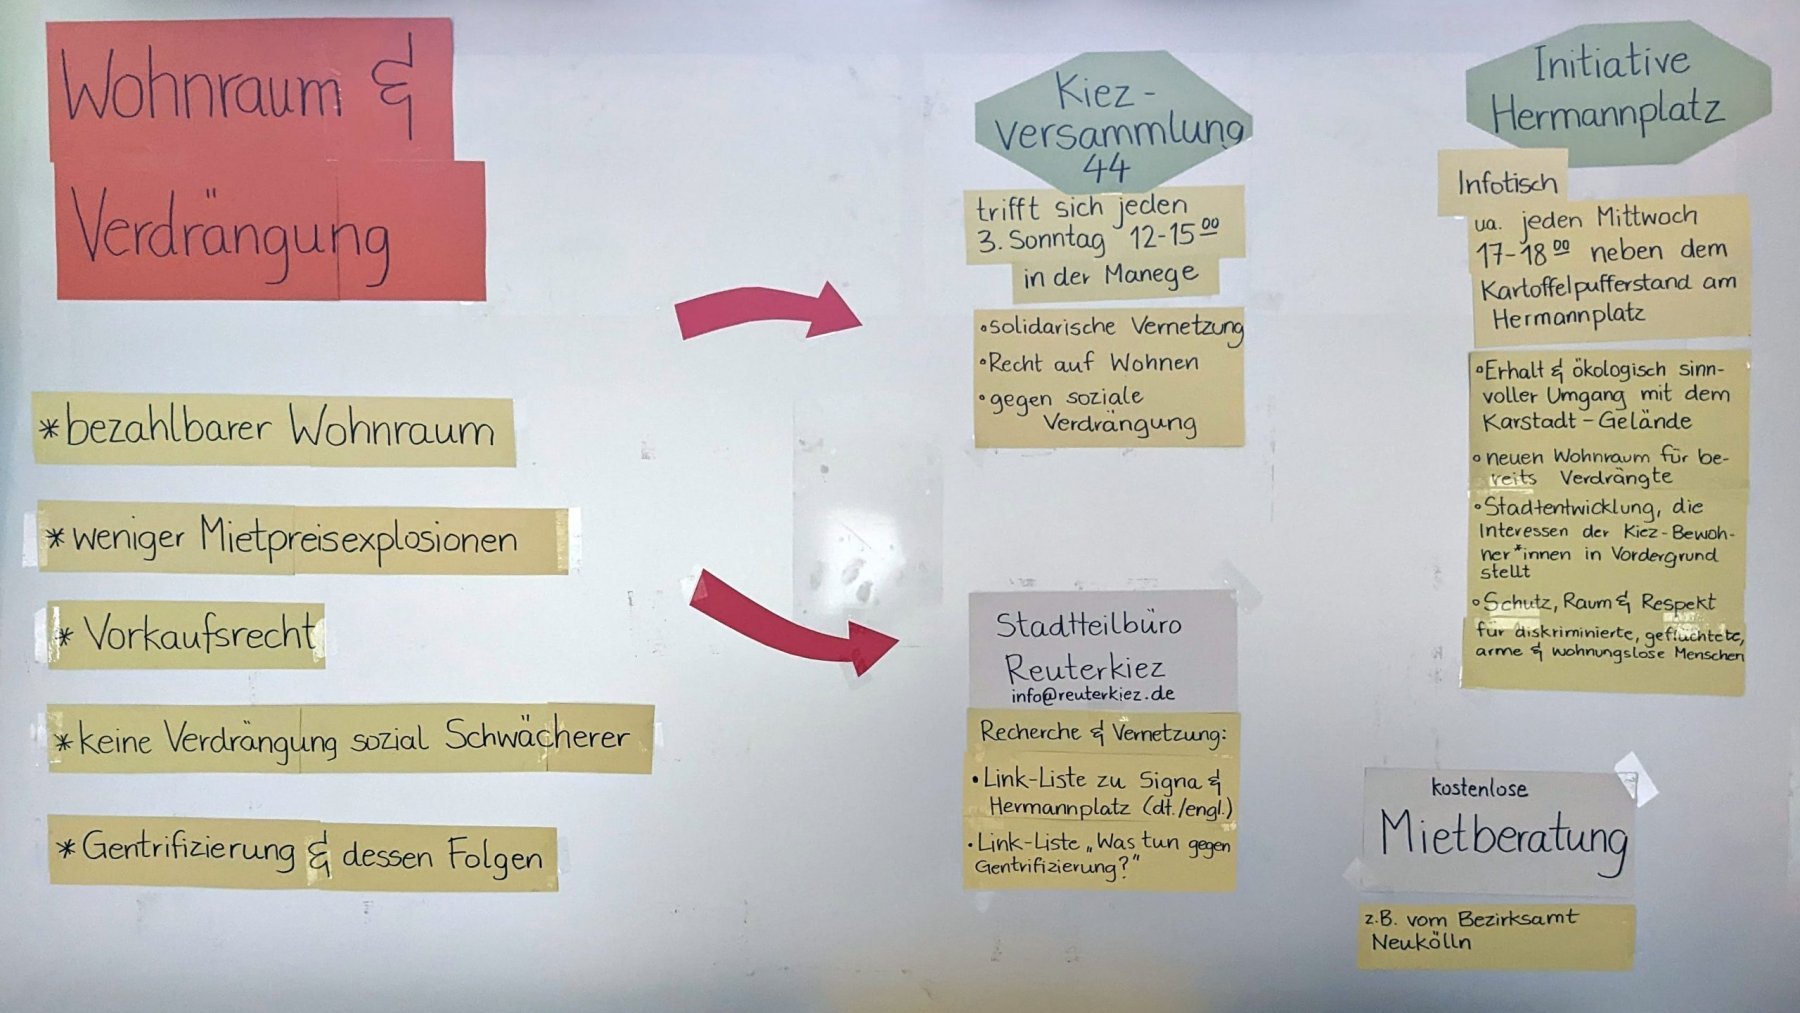 Wohnraum &
Verdrängung
* bezahlbarer Wohnraum
* weniger Mietpreisexplosionen
* Vorkaufsrecht
* keine Verdrängung sozial Schwächerer
* Gentrifizierung & dessen Folgen
Kiez-
versammlung
44
trifft sich jeden
3. Sonntag 12-15 00
in der Manege
• solidarische Vernetzung
• Recht auf Wohnen
• gegen soziale
Verdrängung
Stadtteilbüro
Reuterkiez
info@reuterkiez.de
Recherche & Vernetzung:
• Link-Liste zu Signa &
Hermannplatz (dt./engl.)
• Link-Liste „Was tun gegen
Gentrifizierung?"
Initiative
Hermannplatz
Infotisch
ua. jeden Mittwoch
17-18 00 neben dem
Kartoffelpufferstand am
Hermannplatz
• Erhalt & ökologisch sinn-
voller Umgang mit dem
Karstadt-Gelände
• neuen Wohnraum für be-
reits Verdrängte
• Stadtentwicklung, die
Interessen der Kiez-Bewoh-
ner*innen in Vordergrund
stellt
• Schutz, Raum & Respekt
für diskriminierte, geflüchtete,
arme & wohnungslose Menschen
kostenlose
Mietberatung
z.B. vom Bezirksamt
Neukölln